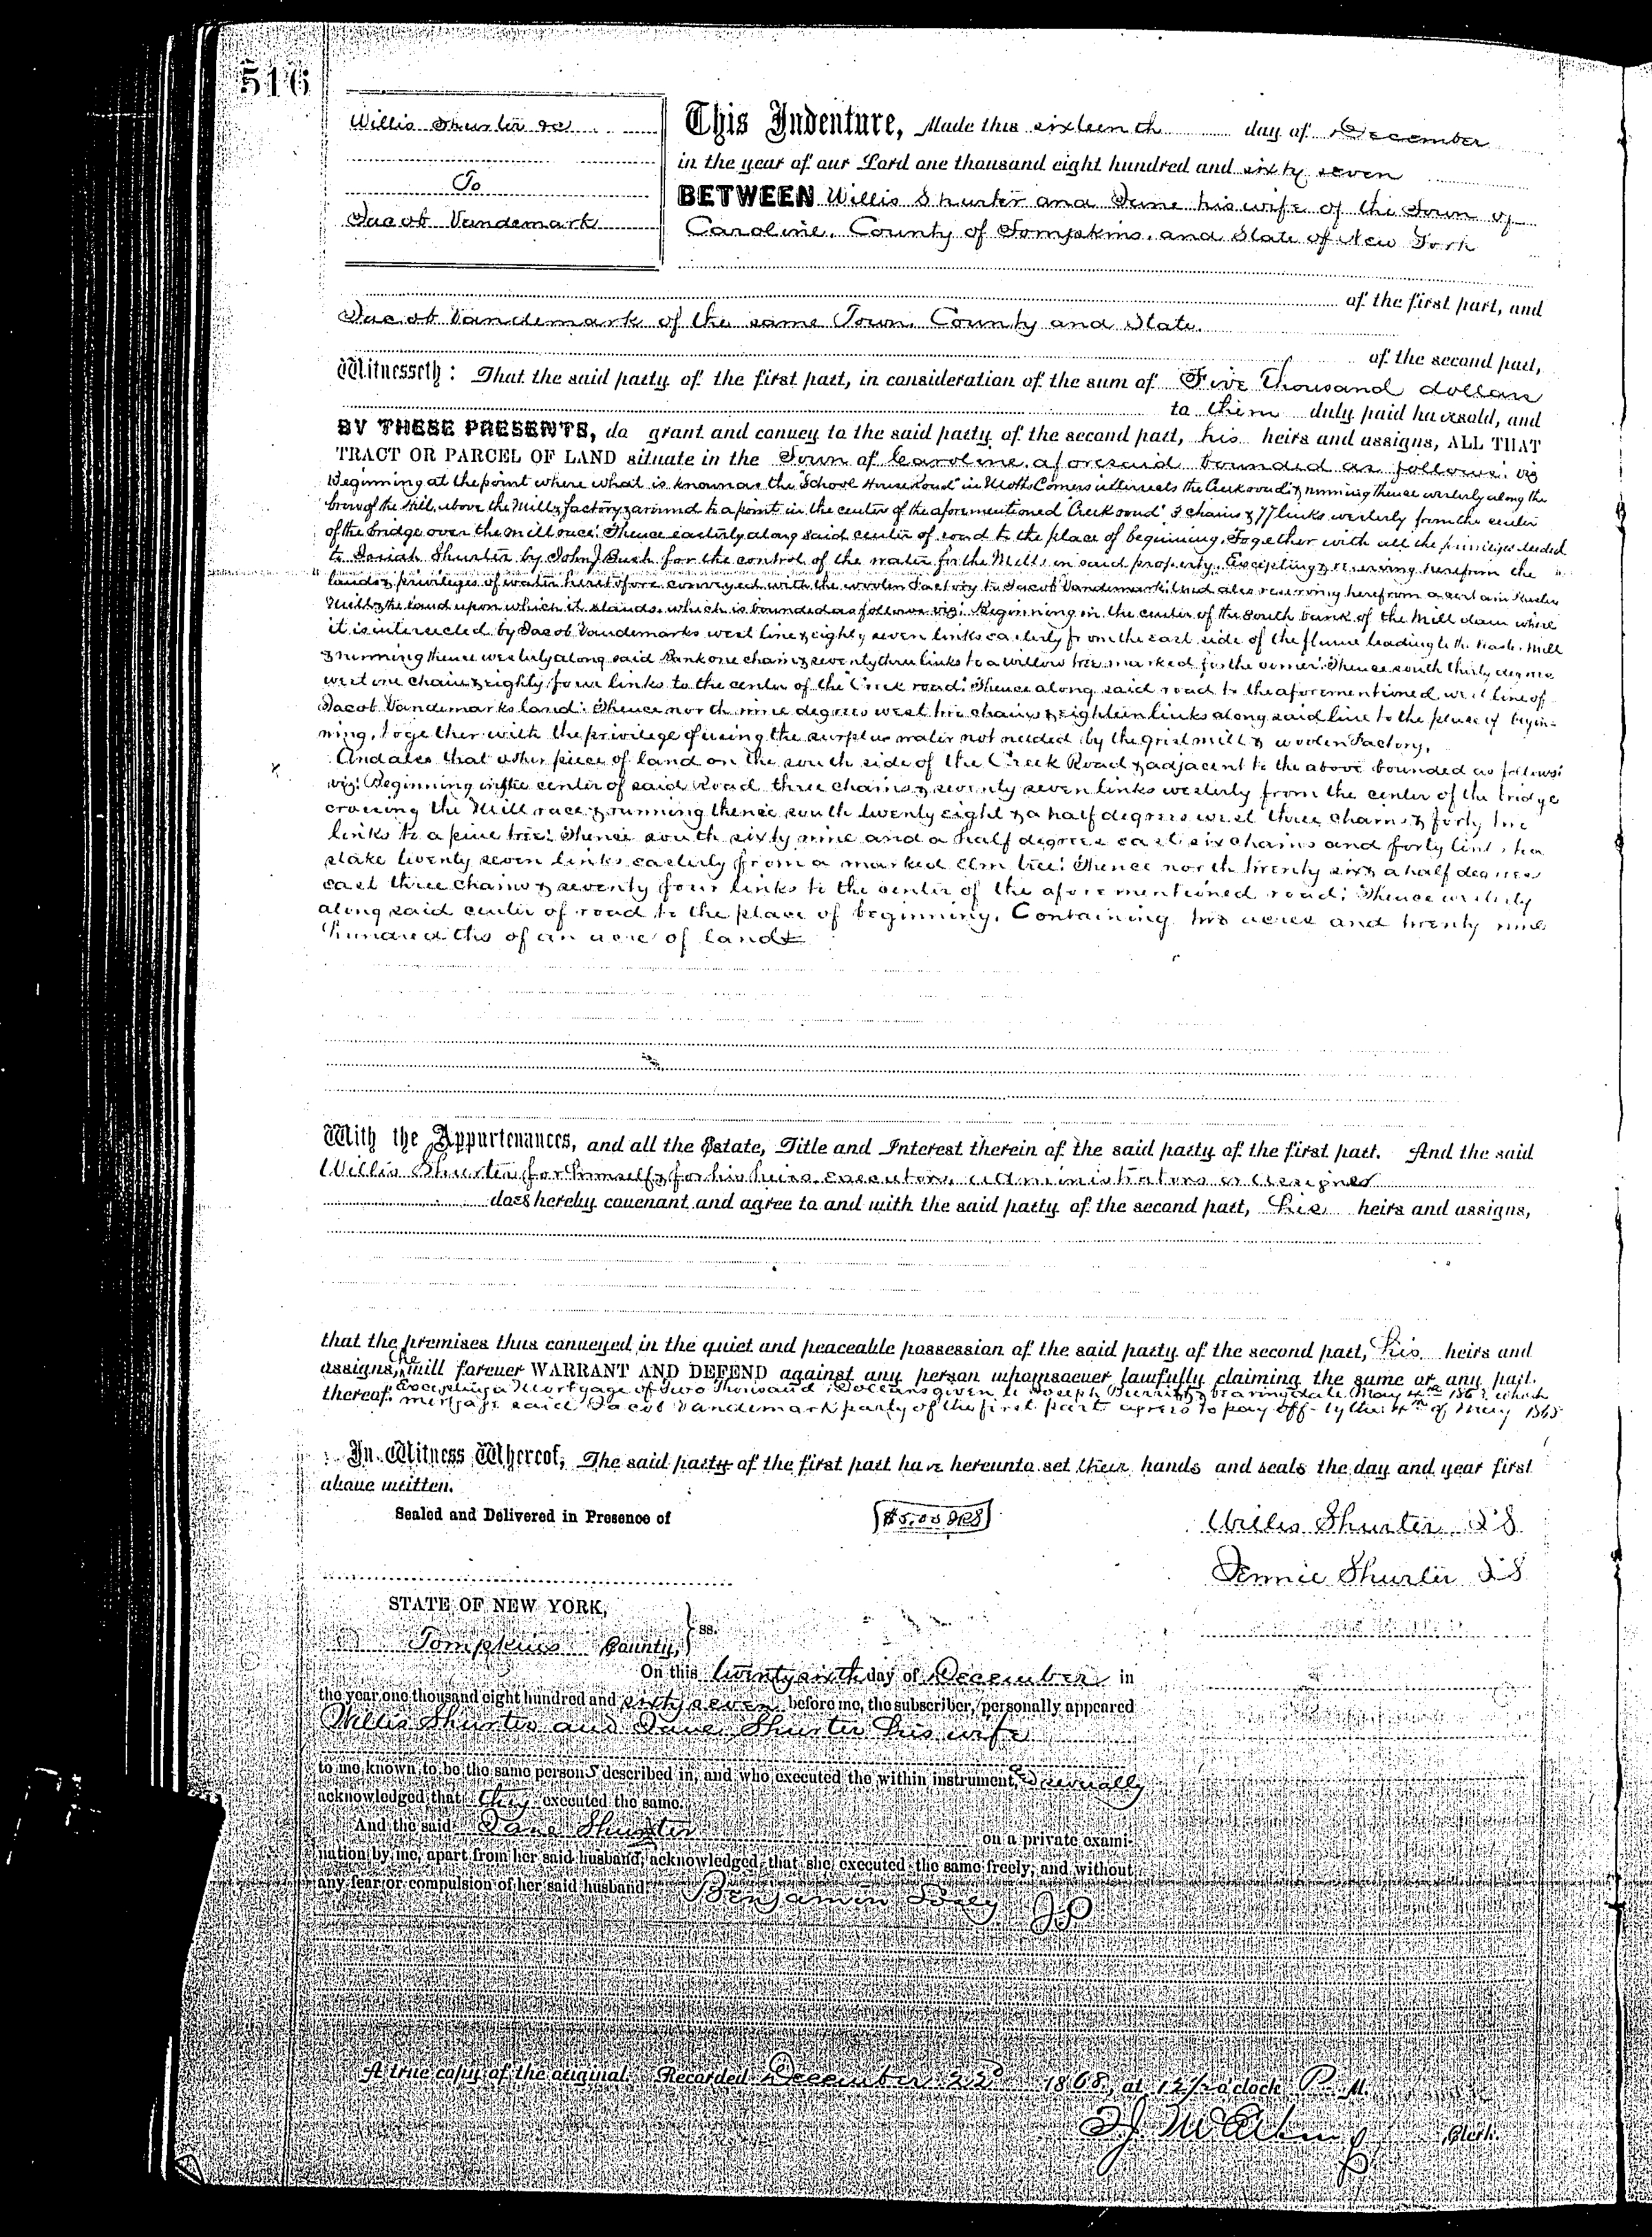 516
Willis Shurter &c
To
Jacob Vandemark
This Indenture, Made this sixteenth day of December
in the year of our Lord one thousand eight hundred and sixty seven
BETWEEN Willis Shurter and Jane his wife of the Town of
Caroline, County of Tompkins, and State of New York
of the first part, and
Jacob Vandemark of the same Town, County and State.
of the second part,
Witnesseth: That the said party of the first part, in consideration of the sum of Five Thousand dollars
to them duly paid have sold, and
BY THESE PRESENTS, do grant and convey to the said party of the second part, his heirs and assigns, ALL THAT
TRACT OR PARCEL OF LAND situate in the Town of Caroline aforesaid bounded as follows: viz
Beginning at the point where what is known as the "School House road" in Motts Corners intersects the Creek road; & running thence westerly along the
brow of the Hill, above the Mill & factory & around to a point in the center of the aforementioned "Creek road" 3 chains & 77 links westerly from the center
of the bridge over the mill race: Thence easterly along said center of road to the place of beginning. Together with all the privileges deeded
to Josiah Shurter by John J Bush for the control of the water for the Mills on said property. Excepting & reserving herefrom the
lands & privileges of water heretofore conveyed with the woolen Factory to Jacob Vandemark: And also reserving herefrom a certain
Mill & the land upon which it stands, which is bounded as follows viz: Beginning in the center of the south bank of the Mill dam where
it is intersected by Jacob Vandemarks west line & eighty seven links easterly from the east side of the flume leading to the Mill
& running thence westerly along said Bank one chain & seventy three links to a willow tree marked for the corner: Thence south thirty degrees
west one chain & eighty four links to the center of the "Creek road": Thence along said road to the aforementioned west line of
Jacob Vandemarks land: Thence north nine degrees west two chains & eighteen links along said line to the place of begin-
ning, together with the privilege of using the surplus water not needed by the grist mill & woolen Factory.
And also that other piece of land on the south side of the Creek Road & adjacent to the above bounded as follows:
viz: Beginning in the center of said Road three chains & seventy seven links westerly from the center of the bridge
crossing the Mill race & running thence south twenty eight & a half degrees west three chains & forty two
links to a pine tree: Thence south sixty nine and a half degrees east six chains and forty links to a
stake twenty seven links easterly from a marked Elm tree: Thence north twenty six & a half degrees
east three chains & seventy four links to the center of the aforementioned road: Thence westerly
along said center of road to the place of beginning. Containing two acres and twenty nine
hundredths of an acre of land
With the Appurtenances, and all the Estate, Title and Interest therein of the said party of the first part. And the said
Willis Shurter for himself & for his heirs, executors, administrators & assigns
does hereby covenant and agree to and with the said party of the second part, his heirs and assigns,
that the premises thus conveyed in the quiet and peaceable possession of the said party of the second part, his heirs and
assigns, he will forever WARRANT AND DEFEND against any person whomsoever lawfully claiming the same or any part.
thereof. Excepting a Mortgage of Two Thousand Dollars given to Joseph bearing date May 4th which
mortgage said Jacob Vandemark party of the first part agrees to pay off by the 4th of May
In Witness Whereof, The said party of the first part have hereunto set their hands and seals the day and year first
above written.
Sealed and Delivered in Presence of
$5.00 IRS
Willis Shurter L S
Jennie Shurter L S
STATE OF NEW YORK,
Tompkins County, } ss.
On this twenty sixth day of December in
the year one thousand eight hundred and sixty seven before me, the subscriber, personally appeared
Willis Shurter and Jane Shurter his wife
to me known to be the same persons described in, and who executed the within instrument, & severally
acknowledged that they executed the same.
And the said Jane Shurter on a private exami-
nation by me, apart from her said husband, acknowledged that she executed the same freely, and without
any fear or compulsion of her said husband. Benjamin JP
A true copy of the original, Recorded December 22d 1868, at 12½ o'clock P. M.
Clerk.